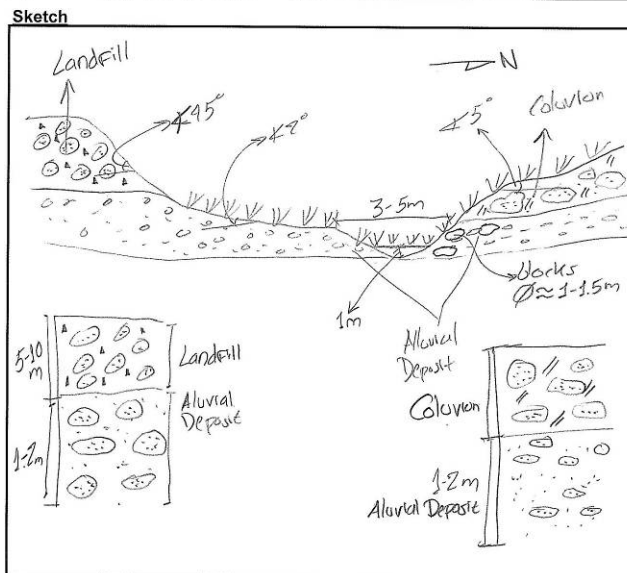 Sketch
Landfill
∡45°
∡2°
N
∡5°
Coluvion
3-5m
1m
Aluvial
Deposit
blocks
Ø≈1-1.5m
5-10
m
Landfill
Aluvial
Deposit
1-2m
Coluvion
1-2m
Aluvial Deposit